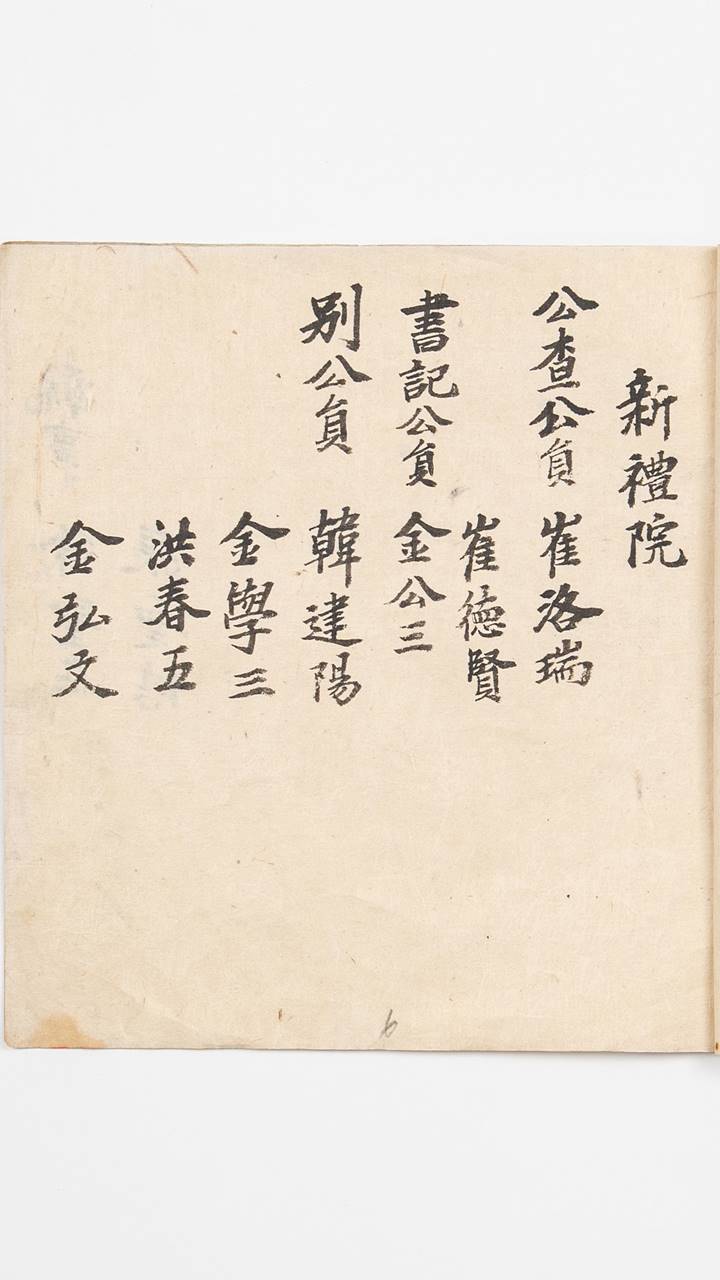 新禮院
公査公員 崔洛瑞
崔德賢
書記公員 金公三
別公員 韓建陽
金學三
洪春五
金弘文
6